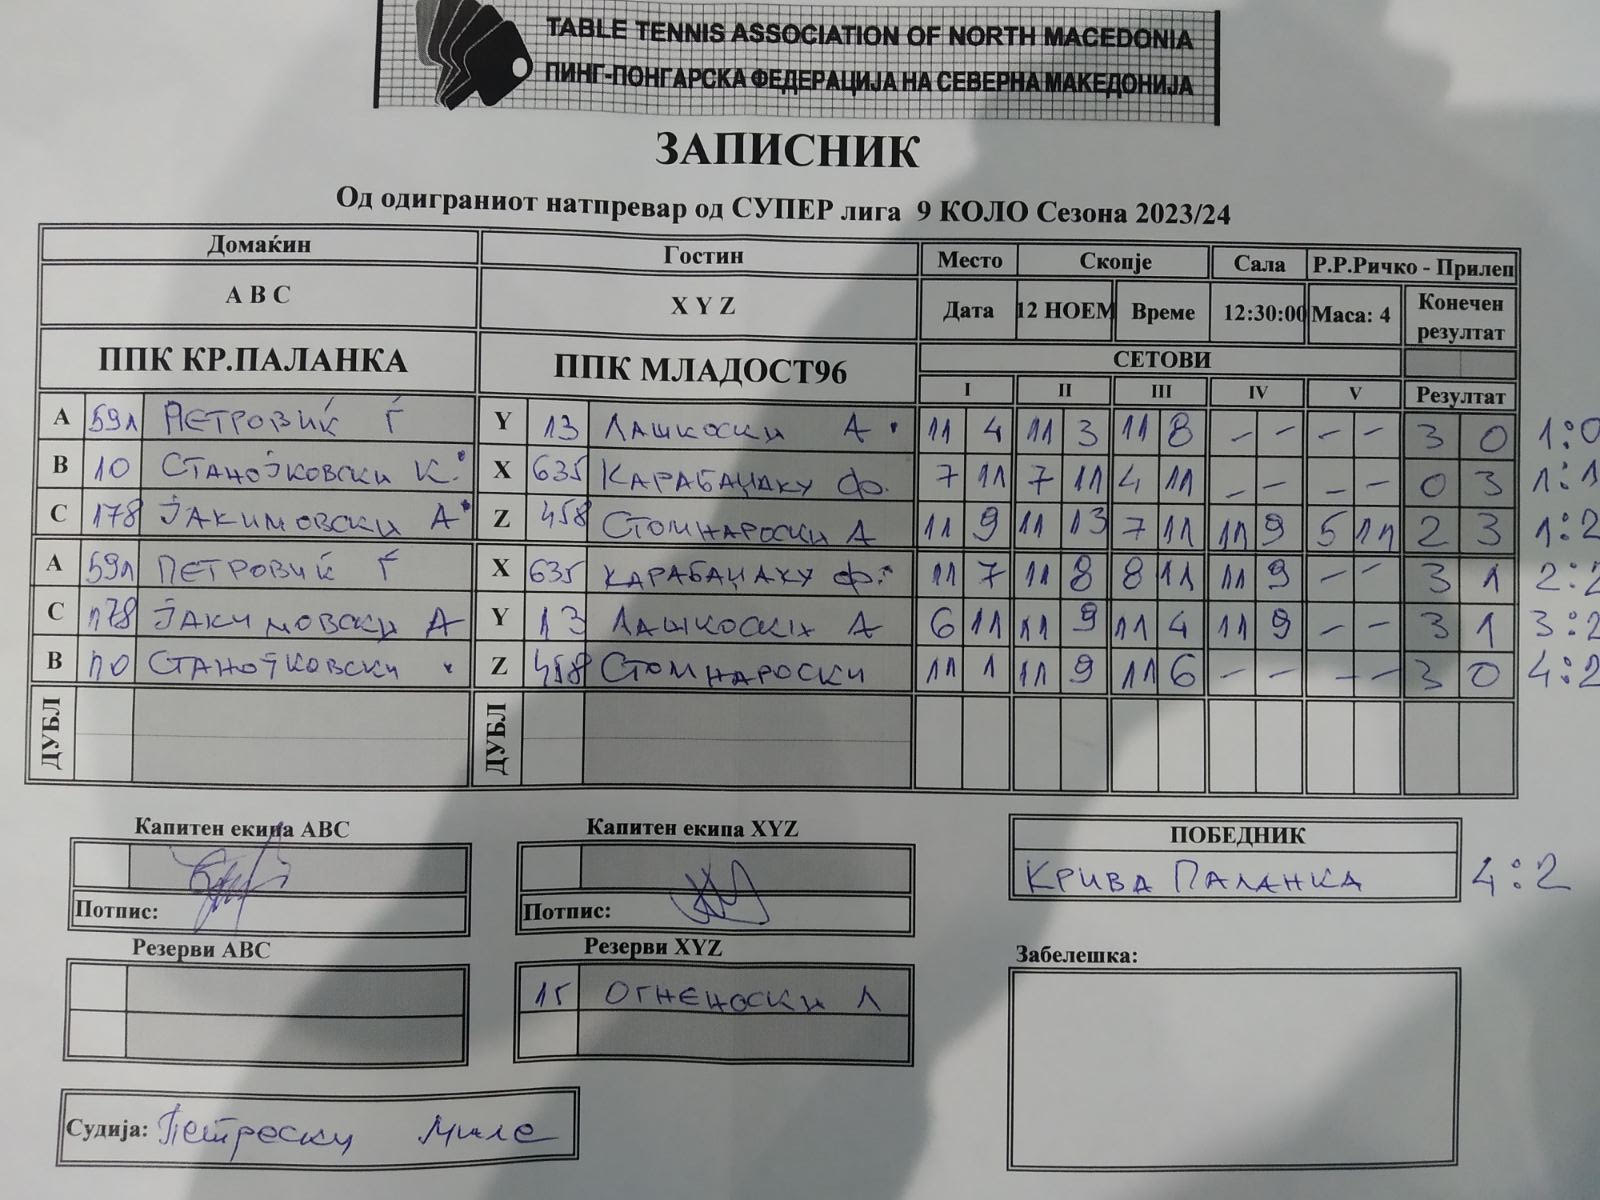 TABLE TENNIS ASSOCIATION OF NORTH MACEDONIA
ПИНГ-ПОНГАРСКА ФЕДЕРАЦИЈА НА СЕВЕРНА МАКЕДОНИЈА
ЗАПИСНИК
Од одиграниот натпревар од СУПЕР лига 9 КОЛО Сезона 2023/24
Домаќин Гостин Место Скопје Сала Р.Р.Ричко - Прилеп
A B C X Y Z Дата 12 НОЕМ Време 12:30:00 Маса: 4 Конечен резултат
ППК КР.ПАЛАНКА ППК МЛАДОСТ96 СЕТОВИ
I II III IV V Резултат
A 591 ПЕТРОВИЌ Ѓ Y 13 ЛАШКОСКИ А 11 4 11 3 11 8 - - - - 3 0 1:0
B 10 СТАНОЈКОВСКИ К. X 635 КАРАБАЏАКУ Ф. 7 11 7 11 4 11 - - - - 0 3 1:1
C 178 ЈАКИМОВСКИ А Z 458 СТОМНАРОСКИ А 11 9 11 13 7 11 11 9 5 11 2 3 1:2
A 591 ПЕТРОВИЌ Ѓ X 635 КАРАБАЏАКУ Ф. 11 7 11 8 8 11 11 9 - - 3 1 2:2
C 178 ЈАКИМОВСКИ А Y 13 ЛАШКОСКИ А 6 11 11 9 11 4 11 9 - - 3 1 3:2
B 10 СТАНОЈКОВСКИ Z 458 СТОМНАРОСКИ 11 1 11 9 11 6 - - - - 3 0 4:2
ДУБЛ ДУБЛ
Капитен екипа ABC Капитен екипа XYZ ПОБЕДНИК
КРИВА ПАЛАНКА 4:2
Потпис: Потпис:
Резерви ABC Резерви XYZ Забелешка:
15 ОГНЕНОСКИ Л
Судија: Петрески Миле